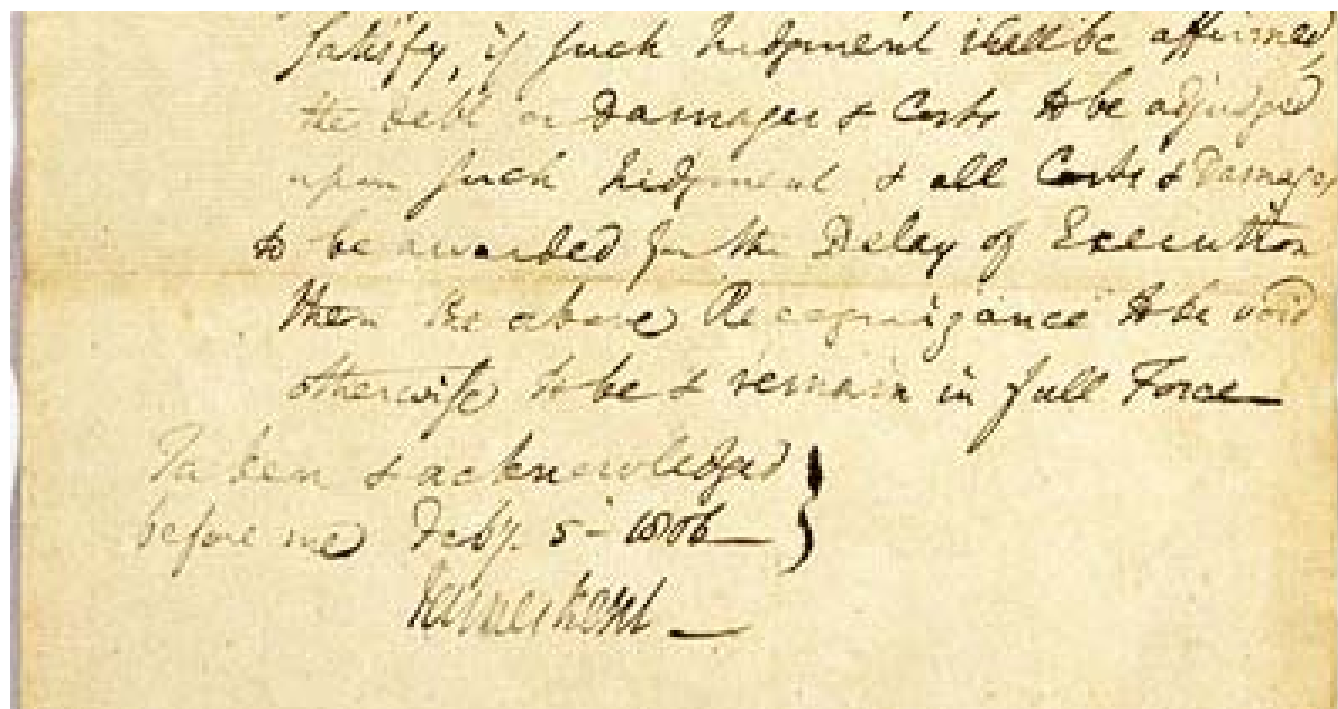 satisfy, if such Judgment shall be affirmed,
the debt or Damages & Costs to be adjudged
upon such Judgment & all Costs & Damages
to be awarded for the Delay of Execution
then the above Recognizance to be void
otherwise to be & remain in full Force
Taken & acknowledged
before me Feby. 5 - 1806
James Kent